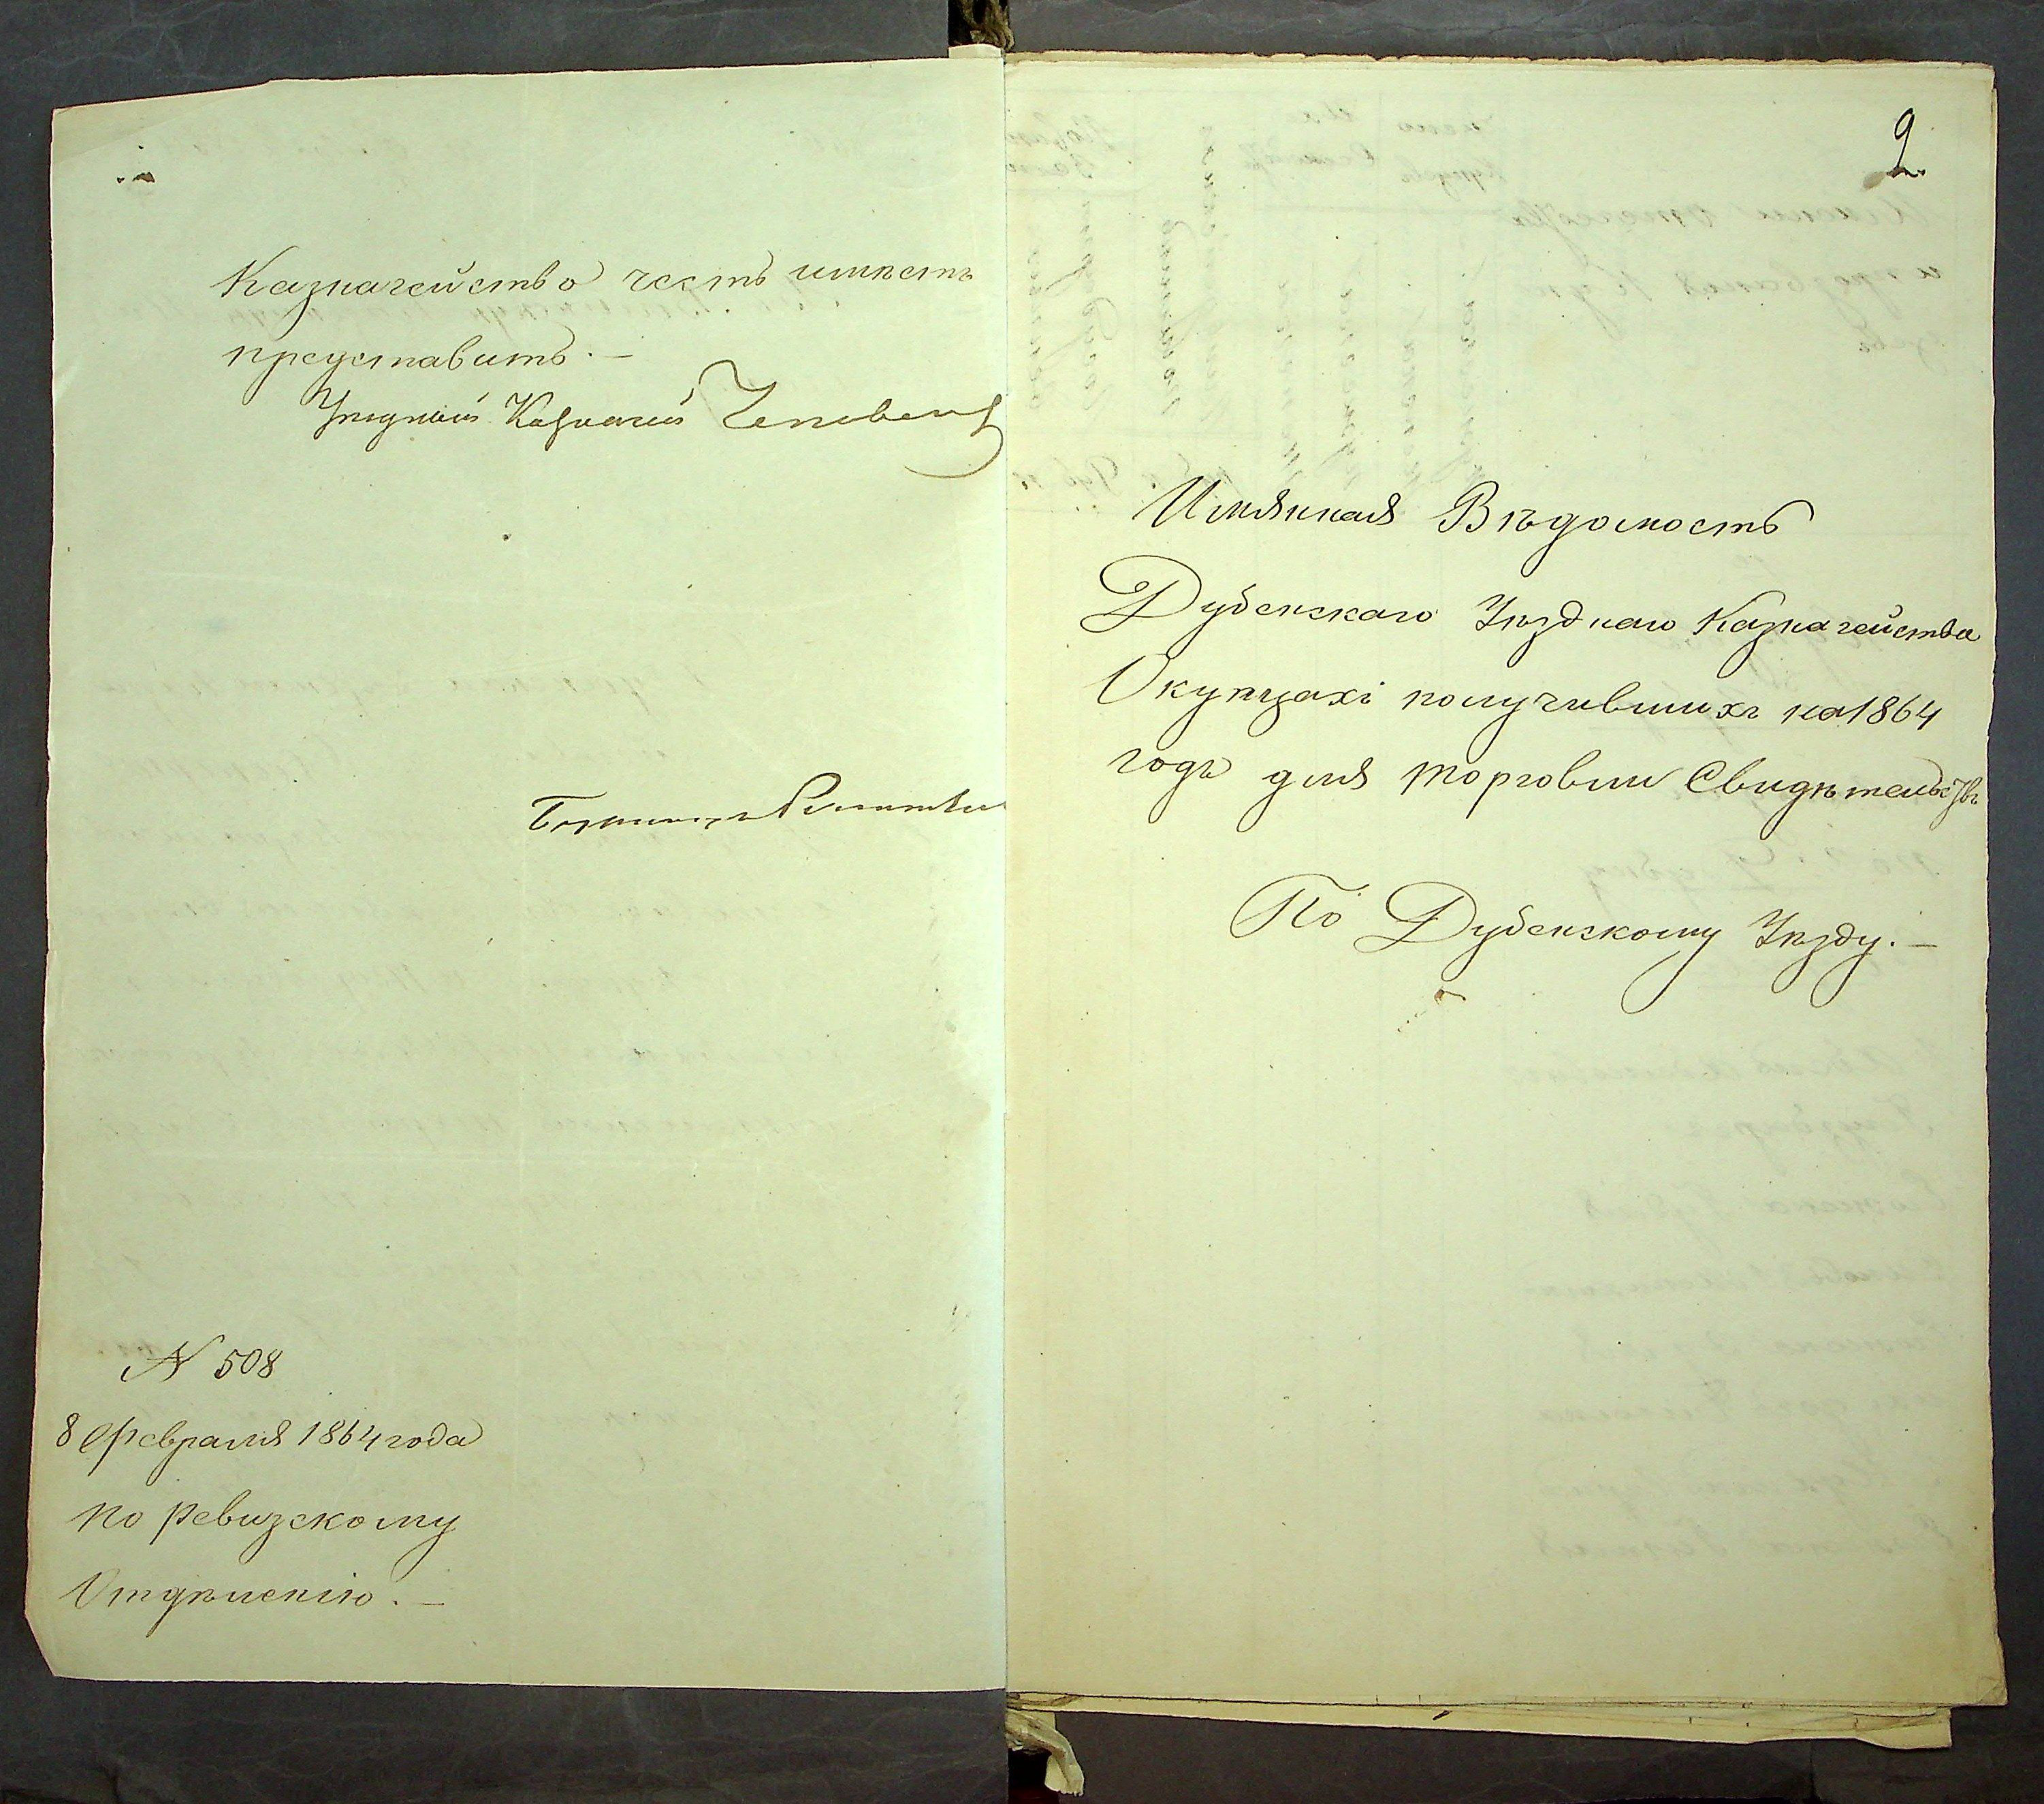 Казначейство честь имѣетъ
представить. —
Уѣздный Казначей
Бухгалтеръ
N 508
8 Февраля 1864 года
по Ревизскому
Отдѣленію. —
2
Имянная Вѣдомость
Дубенскаго Уѣзднаго Казначейства
О купцахъ получившихъ на 1864
годъ для торговли Свидѣтельствъ
По Дубенскому Уѣзду. —